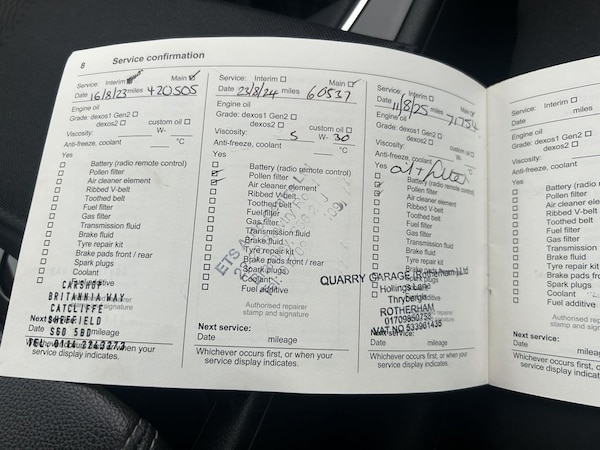 8 Service confirmation
Service: Interim Main
Date 16/8/23 miles 420505
Engine oil
Grade: dexos1 Gen2
dexos2 custom oil
Viscosity: W-
Anti-freeze, coolant °C
Yes
Battery (radio remote control)
Pollen filter
Air cleaner element
Ribbed V-belt
Toothed belt
Fuel filter
Gas filter
Transmission fluid
Brake fluid
Tyre repair kit
Brake pads front / rear
Spark plugs
Coolant
Fuel additive
CARSHOP
BRITANNIA WAY
CATCLIFFE
SHEFFIELD
S60 5BD
TEL 0114 2243273
Next service:
Date mileage
Whichever occurs first, or when your
service display indicates.
Service: Interim Main
Date 23/8/24 miles 60537
Engine oil
Grade: dexos1 Gen2
dexos2 custom oil
Viscosity: 5 W- 30
Anti-freeze, coolant °C
Yes
Battery (radio remote control)
Pollen filter
Air cleaner element
Ribbed V-belt
Toothed belt
Fuel filter
Gas filter
Transmission fluid
Brake fluid
Tyre repair kit
Brake pads front / rear
Spark plugs
Coolant
Fuel additive
ETS
Authorised repairer
stamp and signature
Next service:
Date mileage
Whichever occurs first, or when your
service display indicates.
Service: Interim Main
Date 11/8/25 miles 71754
Engine oil
Grade: dexos1 Gen2
dexos2 custom oil
Viscosity: W-
Anti-freeze, coolant °C
Yes oil + filter
Battery (radio remote control)
Pollen filter
Air cleaner element
Ribbed V-belt
Toothed belt
Fuel filter
Gas filter
Transmission fluid
Brake fluid
Tyre repair kit
Brake pads front / rear
Spark plugs
Coolant
Fuel additive
QUARRY GARAGE (Rotherham) Ltd
Hollings Lane
Thrybergh
ROTHERHAM
01709850758
VAT NO 533961435
Next service:
Date mileage
Whichever occurs first, or when your
service display indicates.
Service: Interim
Date miles
Engine oil
Grade: dexos1 Gen2
dexos2
Viscosity:
Anti-freeze, coolant
Yes
Battery (radio
Pollen filter
Air cleaner ele
Ribbed V-belt
Toothed belt
Fuel filter
Gas filter
Transmission
Brake fluid
Tyre repair kit
Brake pads f
Spark plugs
Coolant
Fuel additive
Authorised
stamp and
Next service:
Date mileage
Whichever occurs first, o
service display indicate